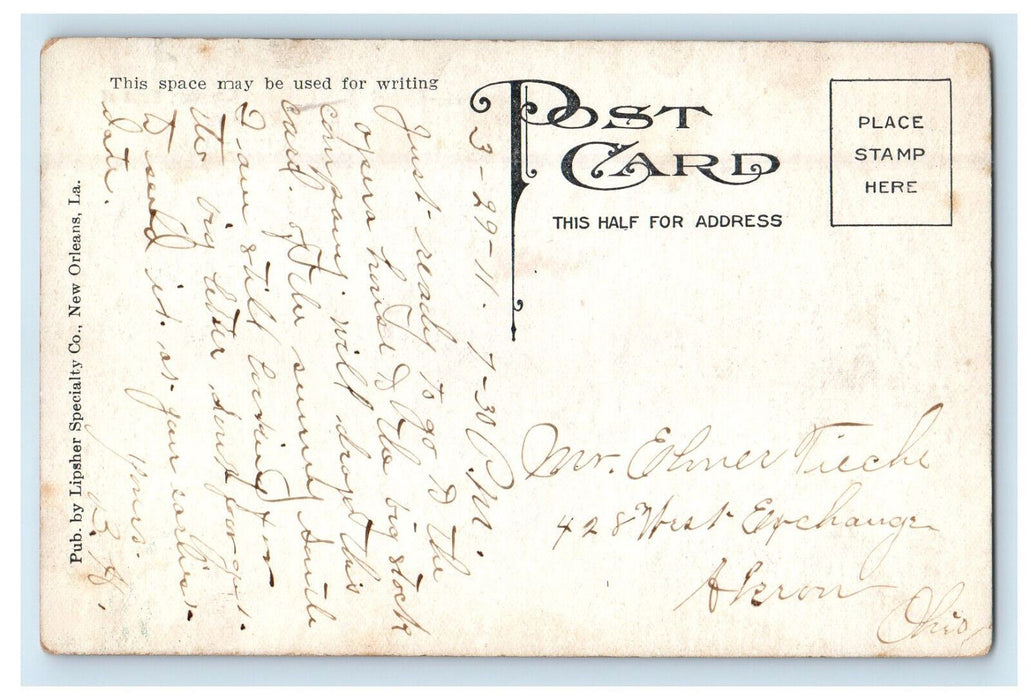 This space may be used for writing
POST CARD
THIS HALF FOR ADDRESS
PLACE
STAMP
HERE
Pub. by Lipsher Specialty Co., New Orleans, La.
3-29-11. 7-30 P.M.
Just ready to go to the
opera house to the big stock
company. will drop this
card. of the sunny South
I am still looking for
the big letter dont forget.
to send it at your earliest
date.
yours.
Mr. Elmer Tieche
428 West Exchange
Akron
Ohio